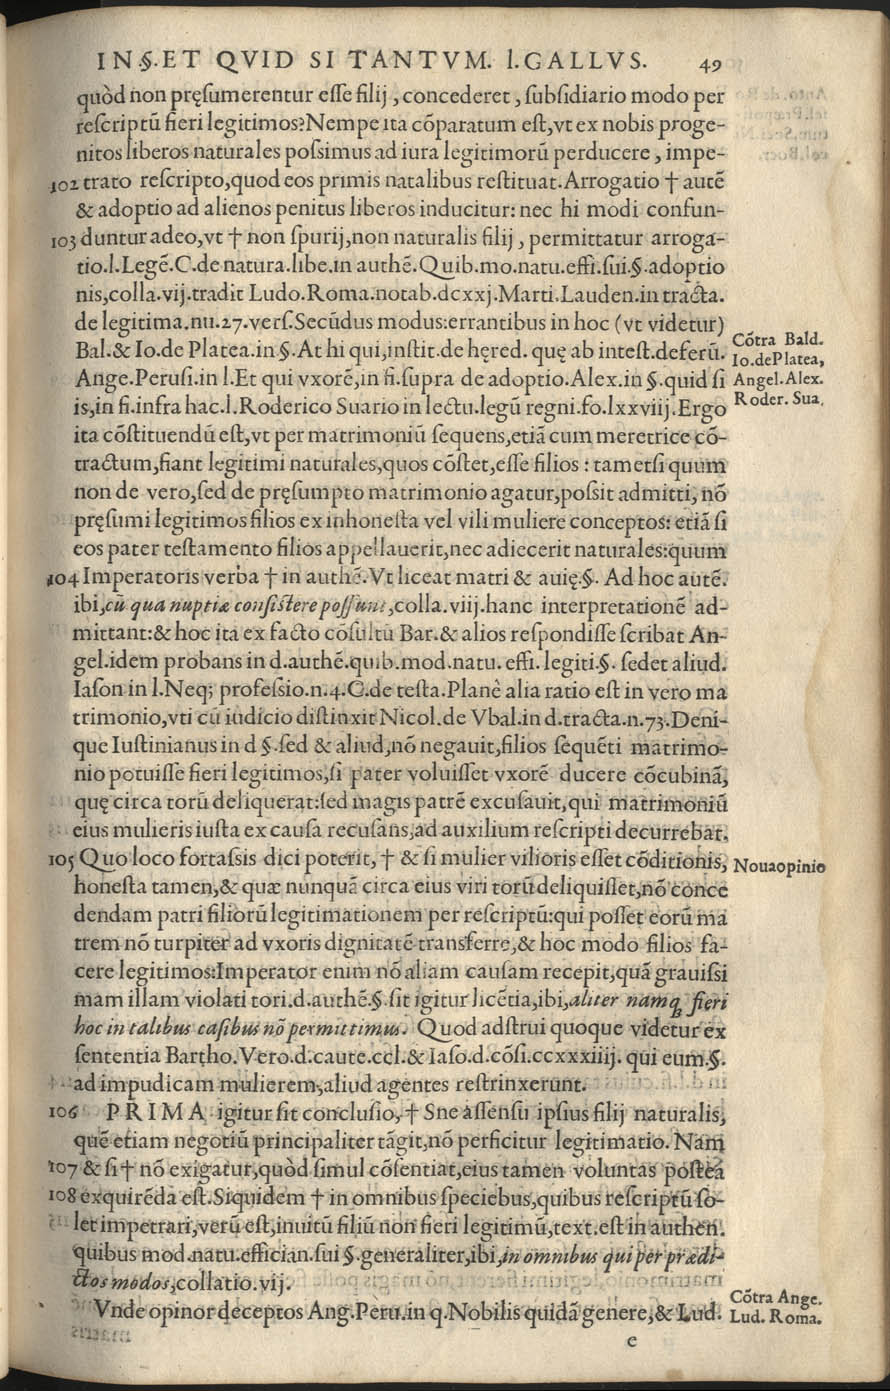 IN §. ET QVID SI TANTVM. l. GALLVS. 49
quòd non pręsumerentur esse filij, concederet, subsidiario modo per
rescriptũ fieri legitimos? Nempe ita cõparatum est, vt ex nobis proge-
nitos liberos naturales possimus ad iura legitimorũ perducere, impe-
102 trato rescripto, quod eos primis natalibus restituat. Arrogatio † autẽ
& adoptio ad alienos penitus liberos inducitur: nec hi modi confun-
103 duntur adeo, vt † non spurij, non naturalis filij, permittatur arroga-
tio. l. Legẽ. C. de natura. libe. in authẽ. Quib. mo. natu. effi. sui. §. adoptio
nis, colla. vij. tradit Ludo. Roma. notab. dcxxj. Marti. Lauden. in tracta.
de legitima. nu. 27. vers. Secũdus modus: errantibus in hoc (vt videtur)
Bal. & Io. de Platea. in §. At hi qui, instit. de hęred. quę ab intest. deferũ.
Cõtra Bald.
Io. de Platea,
Angel. Alex.
Roder. Sua.
Ange. Perusi. in l. Et qui vxorẽ, in fi. supra de adoptio. Alex. in §. quid si
is, in fi. infra hac. l. Roderico Suario in lectu. legũ regni. fo. lxxviij. Ergo
ita cõstituendũ est, vt per matrimoniũ sequens, etiã cum meretrice cõ-
tractum, fiant legitimi naturales, quos cõstet, esse filios : tametsi quum
non de vero, sed de pręsumpto matrimonio agatur, possit admitti, nõ
pręsumi legitimos filios ex inhonesta vel vili muliere conceptos: etiã si
eos pater testamento filios appellauerit, nec adiecerit naturales: quum
104 Imperatoris verba † in authẽ. Vt liceat matri & auię. §. Ad hoc autẽ.
ibi, cũ qua nuptiæ consistere possunt, colla. viij. hanc interpretationẽ ad-
mittant: & hoc ita ex facto cõsultũ Bar. & alios respondisse scribat An-
gel. idem probans in d. authẽ. quib. mod. natu. effi. legiti. §. sed et aliud.
Iason in l. Neq; professio. n. 4. C. de testa. Planè alia ratio est in vero ma
trimonio, vti cũ iudicio distinxit Nicol. de Vbal. in d. tracta. n. 73. Deni-
que Iustinianus in d §. sed & aliud, nõ negauit, filios sequẽti matrimo-
nio potuisse fieri legitimos, si pater voluisset vxorẽ ducere cõcubinã,
quę circa torũ deliquerat: sed magis patrẽ excusauit, qui matrimoniũ
eius mulieris iusta ex causa recusans, ad auxilium rescripti decurrebat.
105 Quo loco fortassis dici poterit, † & si mulier vilioris esset cõditionis,
Noua opinio
honesta tamen, & quæ nunquã circa eius viri torũ deliquisset, nõ conce
dendam patri filiorũ legitimationem per rescriptũ: qui posset eorũ ma
trem nõ turpiter ad vxoris dignitatẽ transferre, & hoc modo filios fa-
cere legitimos: Imperator enim nõ aliam causam recepit, quã grauissi
mam illam violati tori. d. authẽ. §. sit igitur licẽtia, ibi, aliter namq; fieri
hoc in talibus casibus nõ permittimus. Quod adstrui quoque videtur ex
sententia Bartho. Vero. d. caute. ccl. & Iaso. d. cõsi. ccxxxiiij. qui eum. §.
ad impudicam mulierem, aliud agentes restrinxerunt.
106 PRIMA igitur sit conclusio, † Sne assensu ipsius filij naturalis,
quẽ etiam negotiũ principaliter tãgit, nõ perficitur legitimatio. Nam
107 & si † nõ exigatur, quòd simul cõsentiat, eius tamen voluntas postea
108 exquirẽda est. Siquidem † in omnibus speciebus, quibus rescriptũ so-
let impetrari, verũ est, inuitũ filiũ non fieri legitimũ, text. est in authen.
quibus mod. natu. effician. sui §. generaliter, ibi, in omnibus qui per prædi-
ctos modos, collatio. vij.
Vnde opinor deceptos Ang. Peru. in q. Nobilis quidã genere, & Lud.
Cõtra Ange.
Lud. Roma.
e